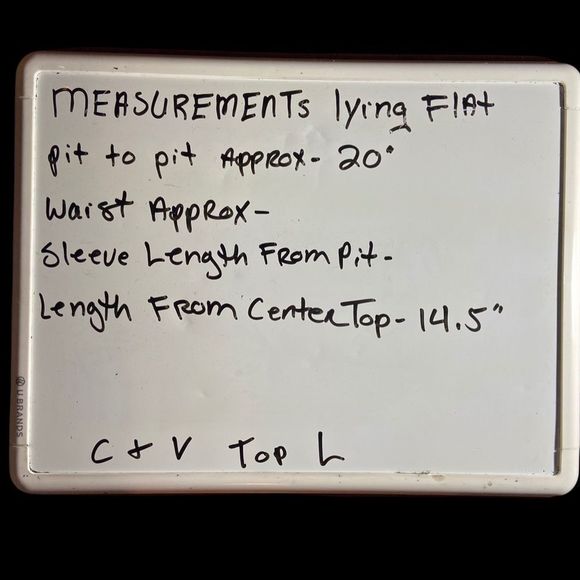 MEASUREMENTS lying FlAt
pit to pit Approx- 20"
Waist Approx-
Sleeve Length From Pit-
Length From Center Top- 14.5"
C + V Top L
U BRANDS